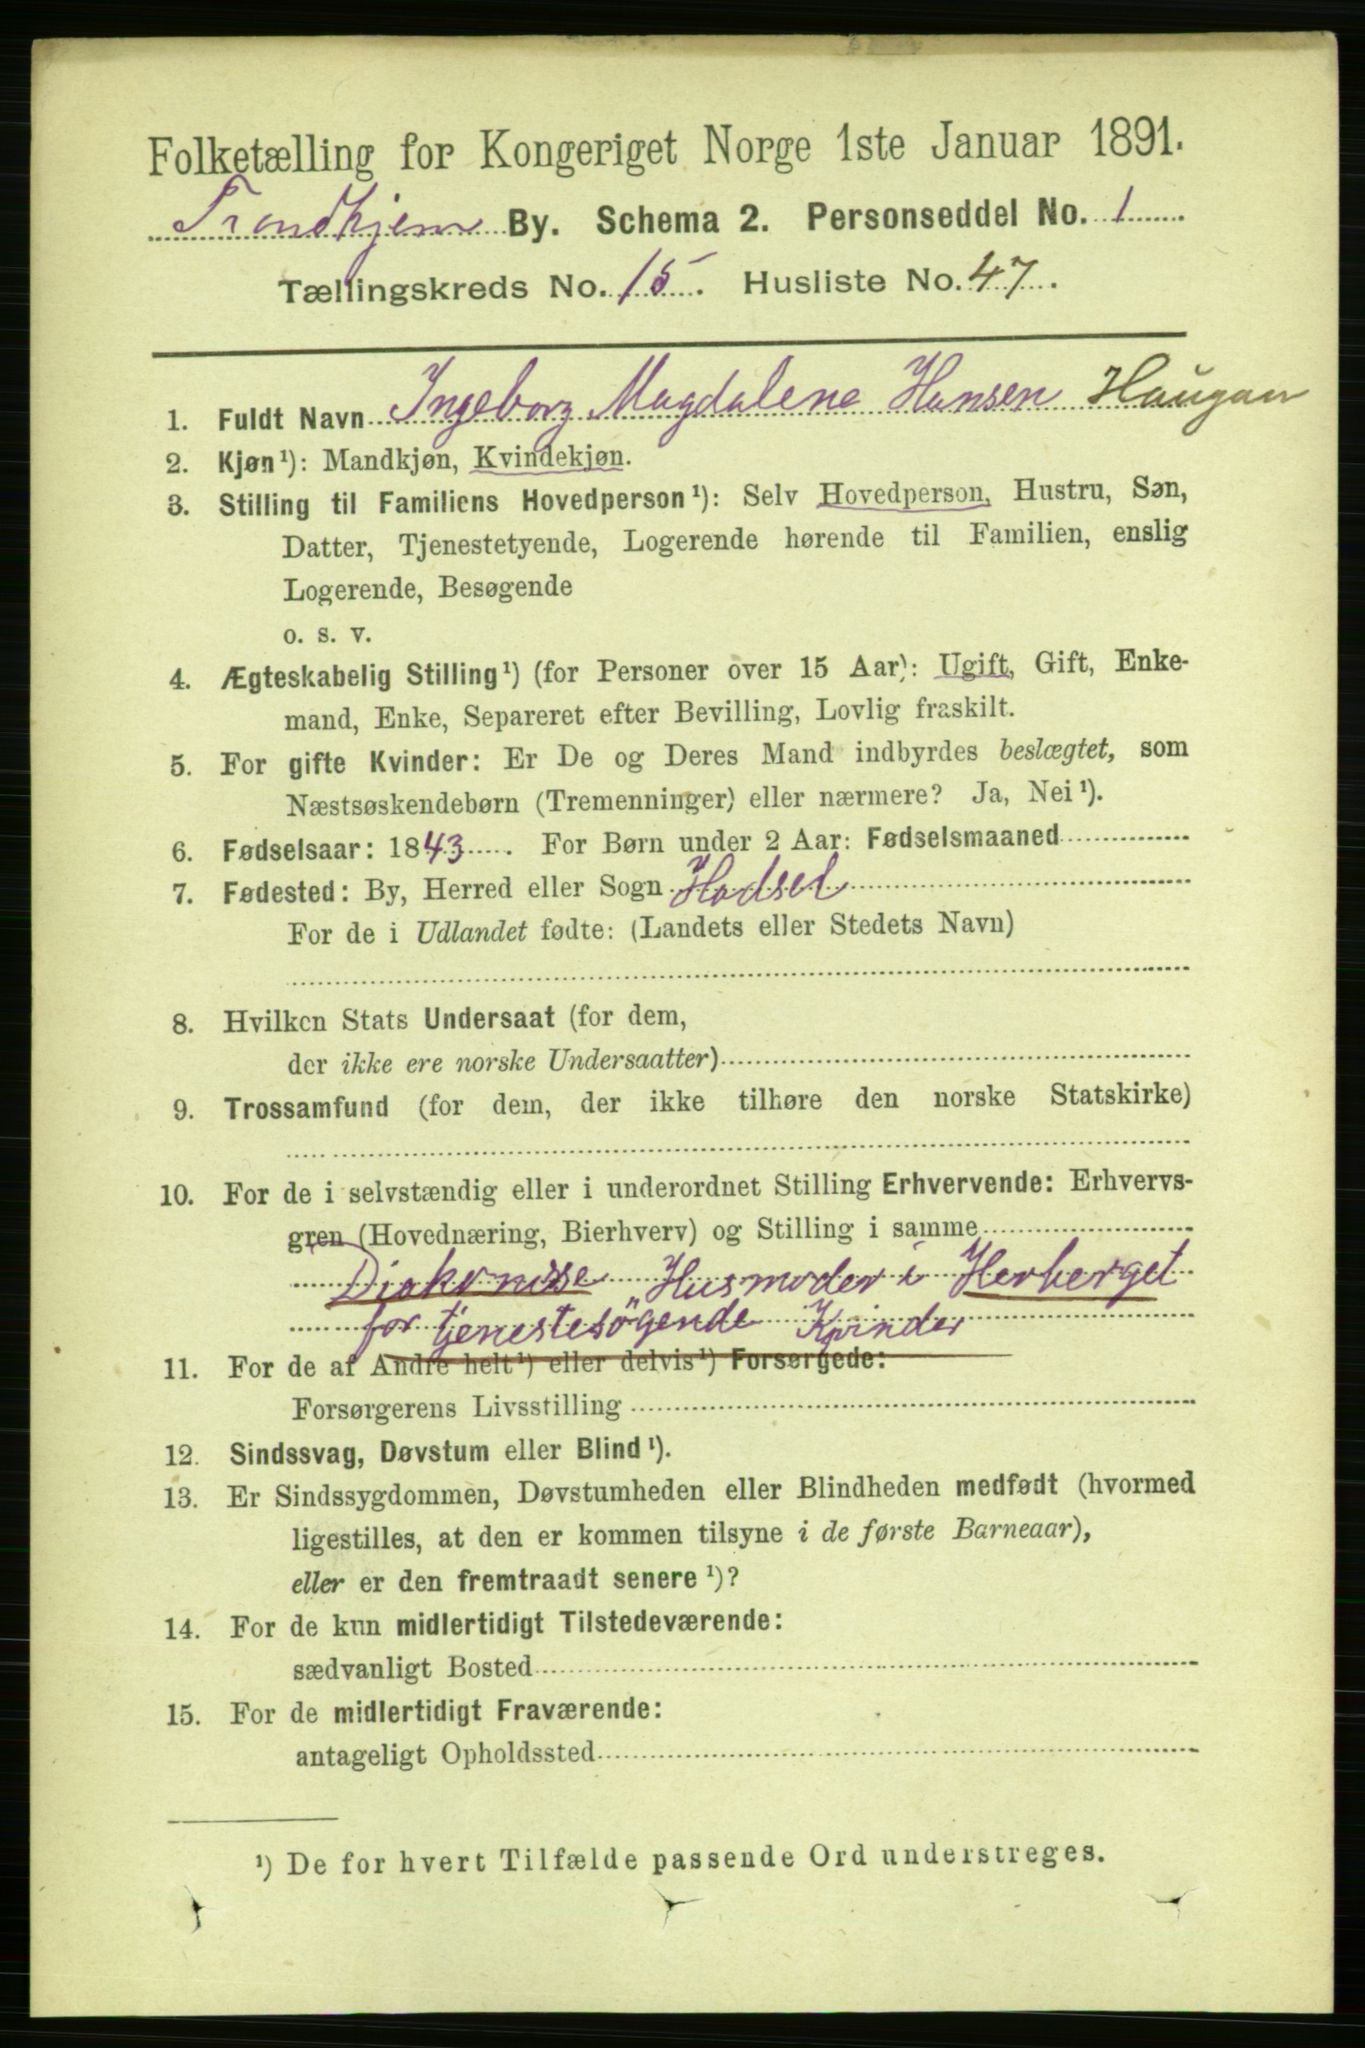 Folketælling for Kongeriget Norge 1ste Januar 1891.
Trondhjem By. Schema 2. Personseddel No. 1
Tællingskreds No. 15. Husliste No. 47.
1. Fuldt Navn Ingeborg Magdalene Hansen Haugan
2. Kjøn¹): Mandkjøn, Kvindekjøn.
3. Stilling til Familiens Hovedperson¹): Selv Hovedperson, Hustru, Søn,
Datter, Tjenestetyende, Logerende hørende til Familien, enslig
Logerende, Besøgende
o. s. v.
4. Ægteskabelig Stilling¹) (for Personer over 15 Aar): Ugift, Gift, Enke-
mand, Enke, Separeret efter Bevilling, Lovlig fraskilt.
5. For gifte Kvinder: Er De og Deres Mand indbyrdes beslægtet, som
Næstsøskendebørn (Tremenninger) eller nærmere? Ja, Nei¹).
6. Fødselsaar: 1843. For Børn under 2 Aar: Fødselsmaaned
7. Fødested: By, Herred eller Sogn Hadsel
For de i Udlandet fødte: (Landets eller Stedets Navn)
8. Hvilken Stats Undersaat (for dem,
der ikke ere norske Undersaatter)
9. Trossamfund (for dem, der ikke tilhøre den norske Statskirke)
10. For de i selvstændig eller i underordnet Stilling Erhvervende: Erhvervs-
gren (Hovednæring, Bierhverv) og Stilling i samme
Diakonisse Husmoder i Herberget
for tjenestesögende Kvinder
11. For de af Andre helt¹) eller delvis¹) Forsørgede:
Forsørgerens Livsstilling
12. Sindssvag, Døvstum eller Blind¹).
13. Er Sindssygdommen, Døvstumheden eller Blindheden medfødt (hvormed
ligestilles, at den er kommen tilsyne i de første Barneaar),
eller er den fremtraadt senere¹)?
14. For de kun midlertidigt Tilstedeværende:
sædvanligt Bosted
15. For de midlertidigt Fraværende:
antageligt Opholdssted
¹) De for hvert Tilfælde passende Ord understreges.